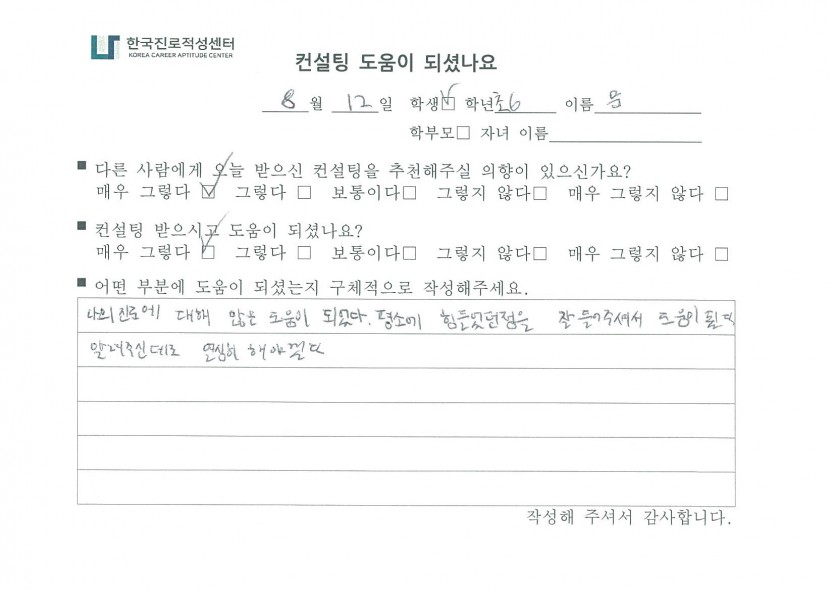 한국진로적성센터
KOREA CAREER APTITUDE CENTER
컨설팅 도움이 되셨나요
8월 12일 학생☑ 학년 초6 이름 문
학부모□ 자녀 이름
■ 다른 사람에게 오늘 받으신 컨설팅을 추천해주실 의향이 있으신가요?
매우 그렇다 ☑ 그렇다 □ 보통이다□ 그렇지 않다□ 매우 그렇지 않다 □
■ 컨설팅 받으시고 도움이 되셨나요?
매우 그렇다 ☑ 그렇다 □ 보통이다□ 그렇지 않다□ 매우 그렇지 않다 □
■ 어떤 부분에 도움이 되셨는지 구체적으로 작성해주세요.
나의 진로에 대해 많은 도움이 되었다. 평소에 힘들었던점을 잘 들어주셔서 도움이 됬다
알려주신데로 열심히 해야겠다
작성해 주셔서 감사합니다.